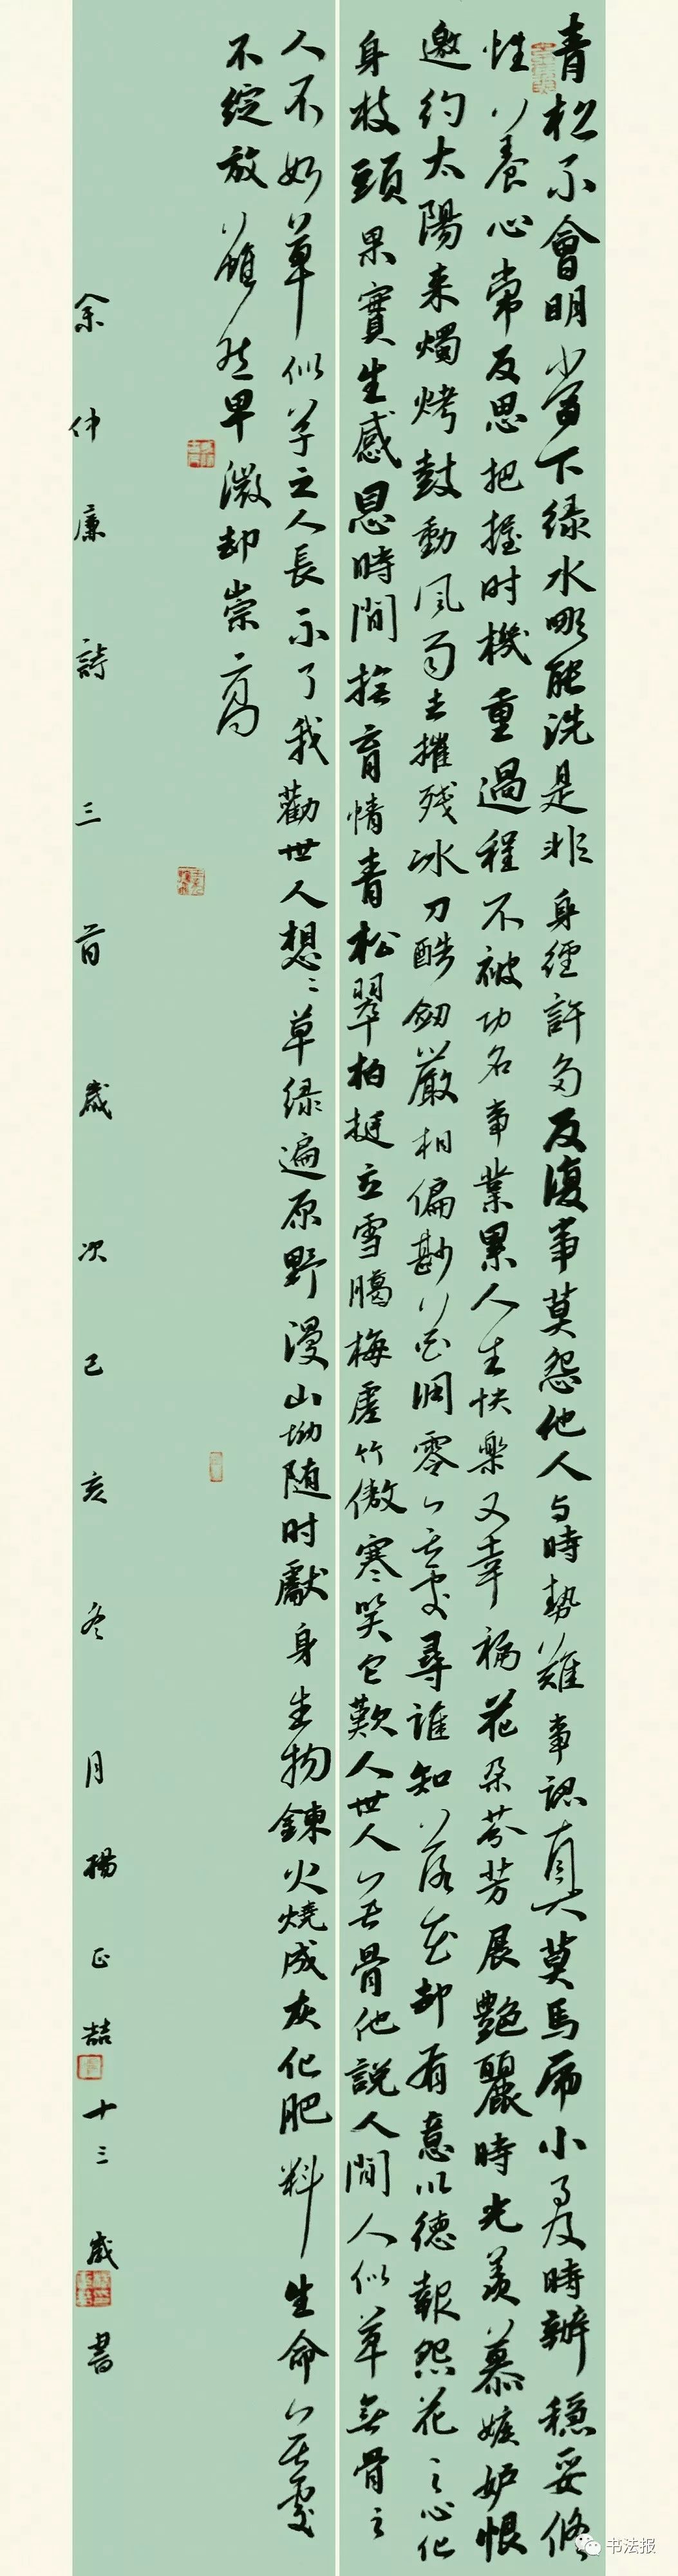 青松不會明當下绿水哪能洗是非身經許多反復事莫怨他人与時勢難事認真莫馬虎小事及時辦穩妥修
性養心常反思把握时機重過程不被功名事業累人生快樂又幸福花朵芬芳展艷麗時光羡慕嫉妒恨
邀约太陽来燭烤鼓動風雨去摧残冰刀酷劍嚴相偏勘花凋零無處尋誰知落花却有意以德報怨花之心化
身枝頭果實生感恩時間撫育情青松翠柏挺立雪臈梅虚竹傲寒笑它歎人世人無骨他説人間人似草無骨之
人不如草似草之人長不了我勸世人想想草绿遍原野漫山坳随时獻身生物鍊火燒成灰化肥料生命無處
不綻放雖然卑微却崇高
余仲廉詩三首歲次己亥冬月楊正喆十三歲書
书法报